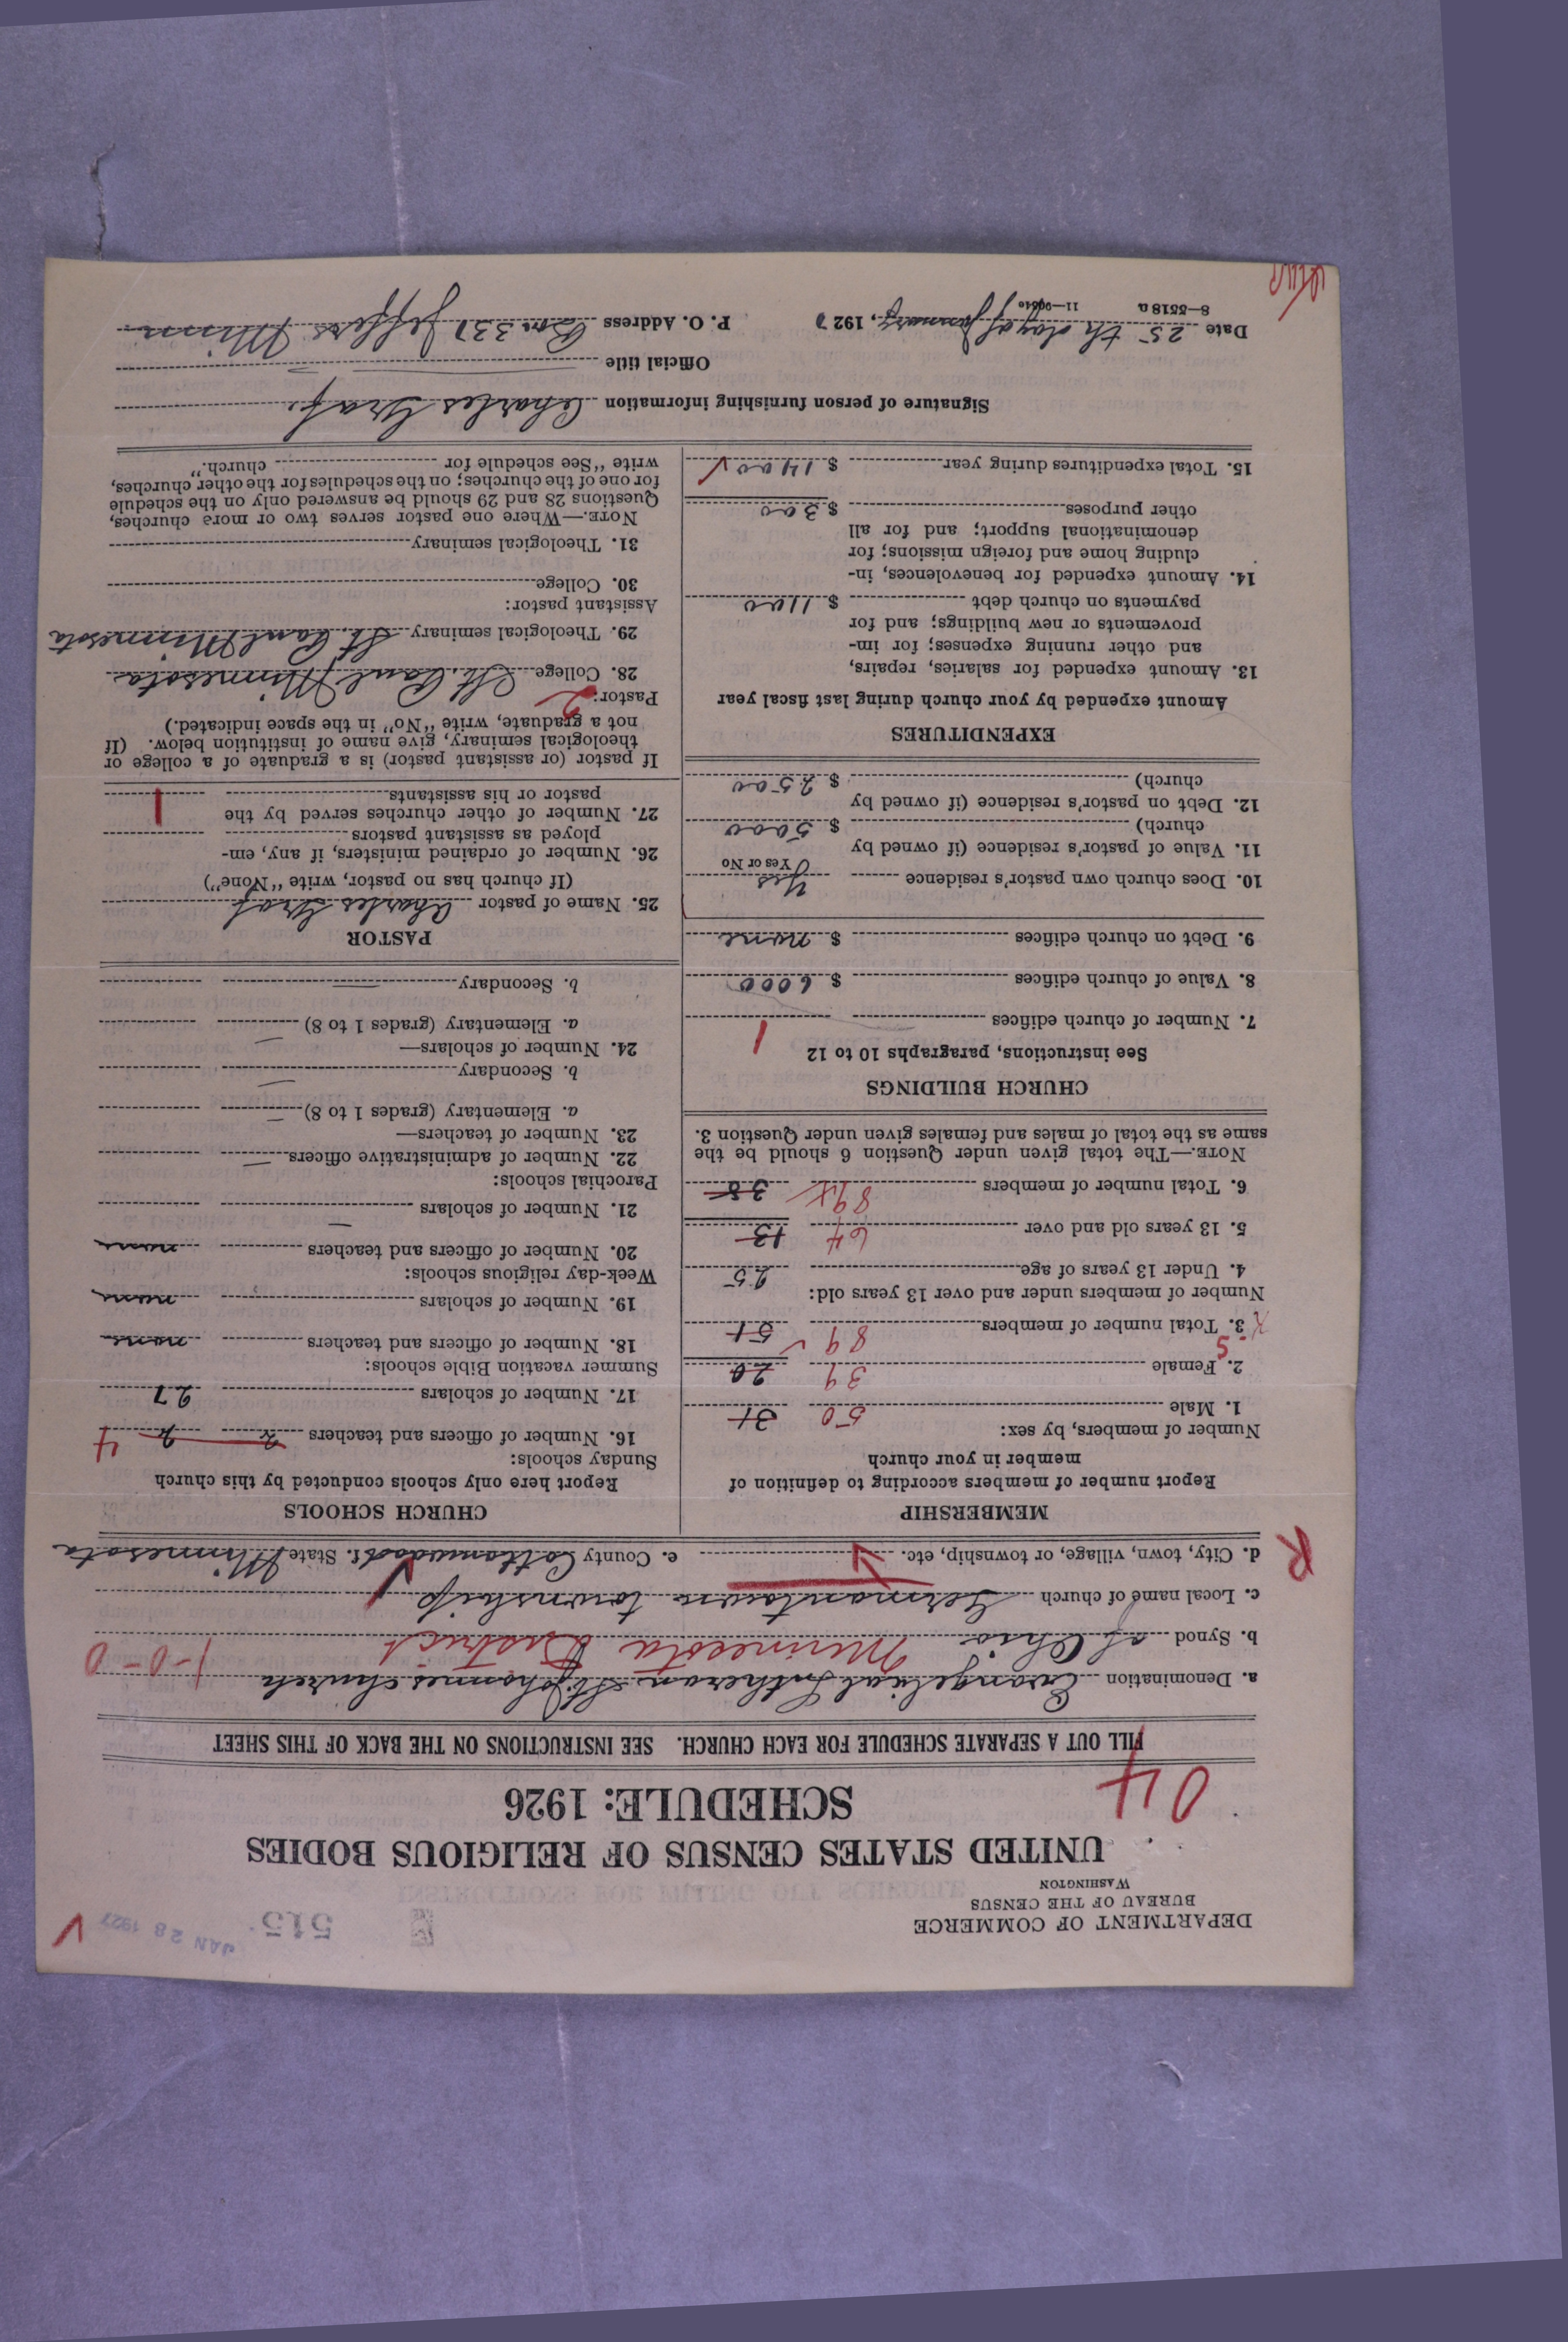 DEPARTMENT OF COMMERCE
BUREAU OF THE CENSUS
WASHINGTON
515
JAN 28 1927
UNITED STATES CENSUS OF RELIGIOUS BODIES
SCHEDULE: 1926
04
FILL OUT A SEPARATE SCHEDULE FOR EACH CHURCH. SEE INSTRUCTIONS ON THE BACK OF THIS SHEET
a. Denomination Evangelical Lutheran St. Johannes Church 1-0-0
b. Synod of Ohio Minnesota District
c. Local name of church Germantown township
d. City, town, village, or township, etc. e. County Cottonwood f. State Minnesota
R
MEMBERSHIP
Report number of members according to definition of
member in your church
Number of members, by sex:
1. Male 50 31
2. Female 39 20
3. Total number of members 89 51
Number of members under and over 13 years old:
4. Under 13 years of age 25
5. 13 years old and over 64 13
6. Total number of members 89 38
NOTE.—The total given under Question 6 should be the
same as the total of males and females given under Question 3.
CHURCH BUILDINGS
See instructions, paragraphs 10 to 12
7. Number of church edifices 1
8. Value of church edifices $ 6000
9. Debt on church edifices $ none
10. Does church own pastor's residence Yes
Yes or No
11. Value of pastor's residence (if owned by
church) $ 5000
12. Debt on pastor's residence (if owned by
church) $ 2500
EXPENDITURES
Amount expended by your church during last fiscal year
13. Amount expended for salaries, repairs,
and other running expenses; for im-
provements or new buildings; and for
payments on church debt $ 1100
14. Amount expended for benevolences, in-
cluding home and foreign missions; for
denominational support; and for all
other purposes $ 300
15. Total expenditures during year $ 1400
CHURCH SCHOOLS
Report here only schools conducted by this church
Sunday schools:
16. Number of officers and teachers 2 2 4
17. Number of scholars 27
Summer vacation Bible schools:
18. Number of officers and teachers none
19. Number of scholars none
Week-day religious schools:
20. Number of officers and teachers none
21. Number of scholars
Parochial schools:
22. Number of administrative officers
23. Number of teachers—
a. Elementary (grades 1 to 8)
b. Secondary
24. Number of scholars—
a. Elementary (grades 1 to 8)
b. Secondary
PASTOR
25. Name of pastor Charles Graf
(If church has no pastor, write "None")
26. Number of ordained ministers, if any, em-
ployed as assistant pastors
27. Number of other churches served by the
pastor or his assistants 1
If pastor (or assistant pastor) is a graduate of a college or
theological seminary, give name of institution below. (If
not a graduate, write "No" in the space indicated.)
Pastor: 2
28. College St. Paul Minnesota
29. Theological seminary St. Paul Minnesota
Assistant pastor:
30. College
31. Theological seminary
NOTE.—Where one pastor serves two or more churches,
Questions 28 and 29 should be answered only on the schedule
for one of the churches; on the schedules for the other churches,
write "See schedule for church."
Signature of person furnishing information Charles Graf.
Official title
Date 25 th day of January, 1927 P. O. Address Box 331 Jeffers Minn
8—5518 a